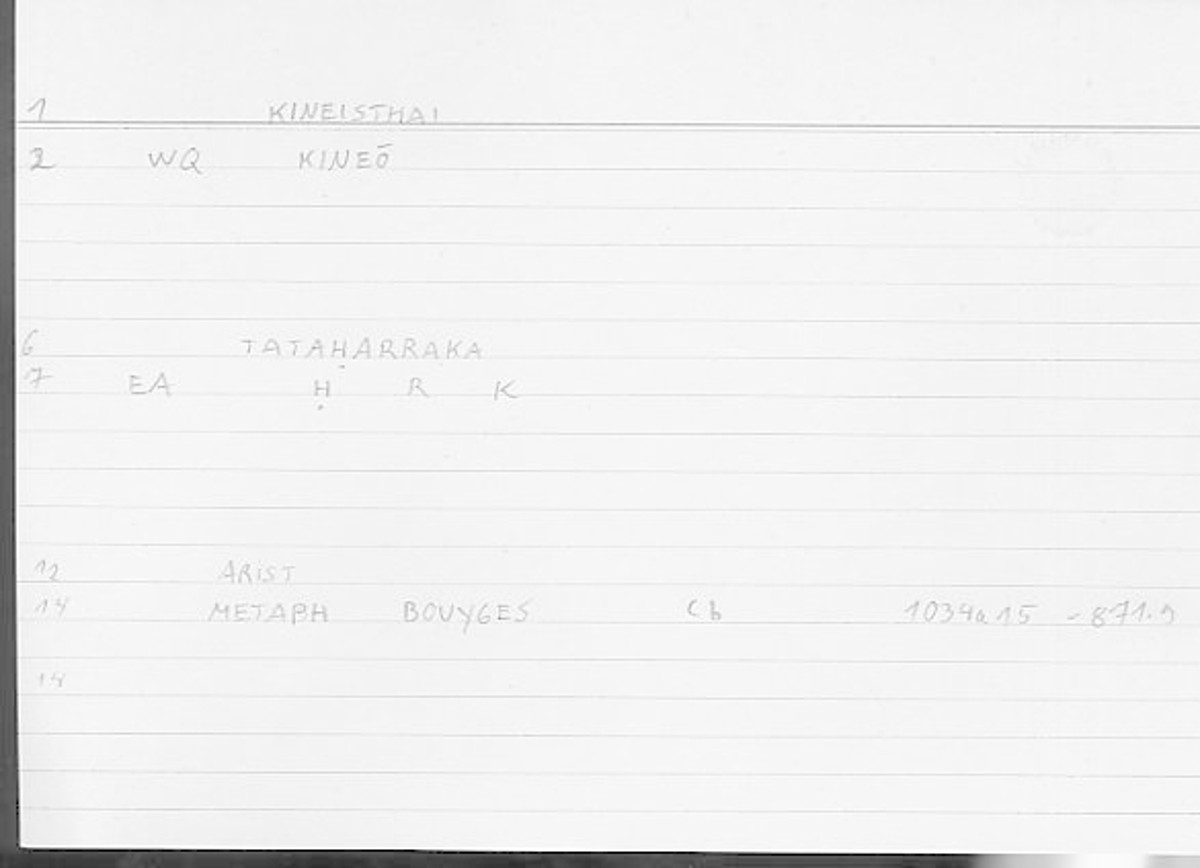 1 KINEISTHAI
2 WQ KINEŌ
6 TATAḤARRAKA
7 EA Ḥ R K
12 ARIST
14 METAPH BOUYGES Cb 1034a15 - 871.9
14